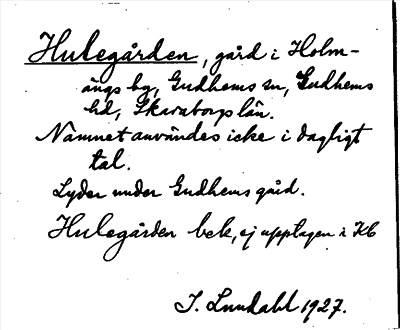 Hulegården, gård i Holm-
ängs by, Gudhems sn, Gudhems
hd, Skaraborgs län.
Namnet användes icke i dagligt
tal.
Lyder under Gudhems gård.
Hulegården bek, ej upptagen i Kb
J. Lundahl 1927.